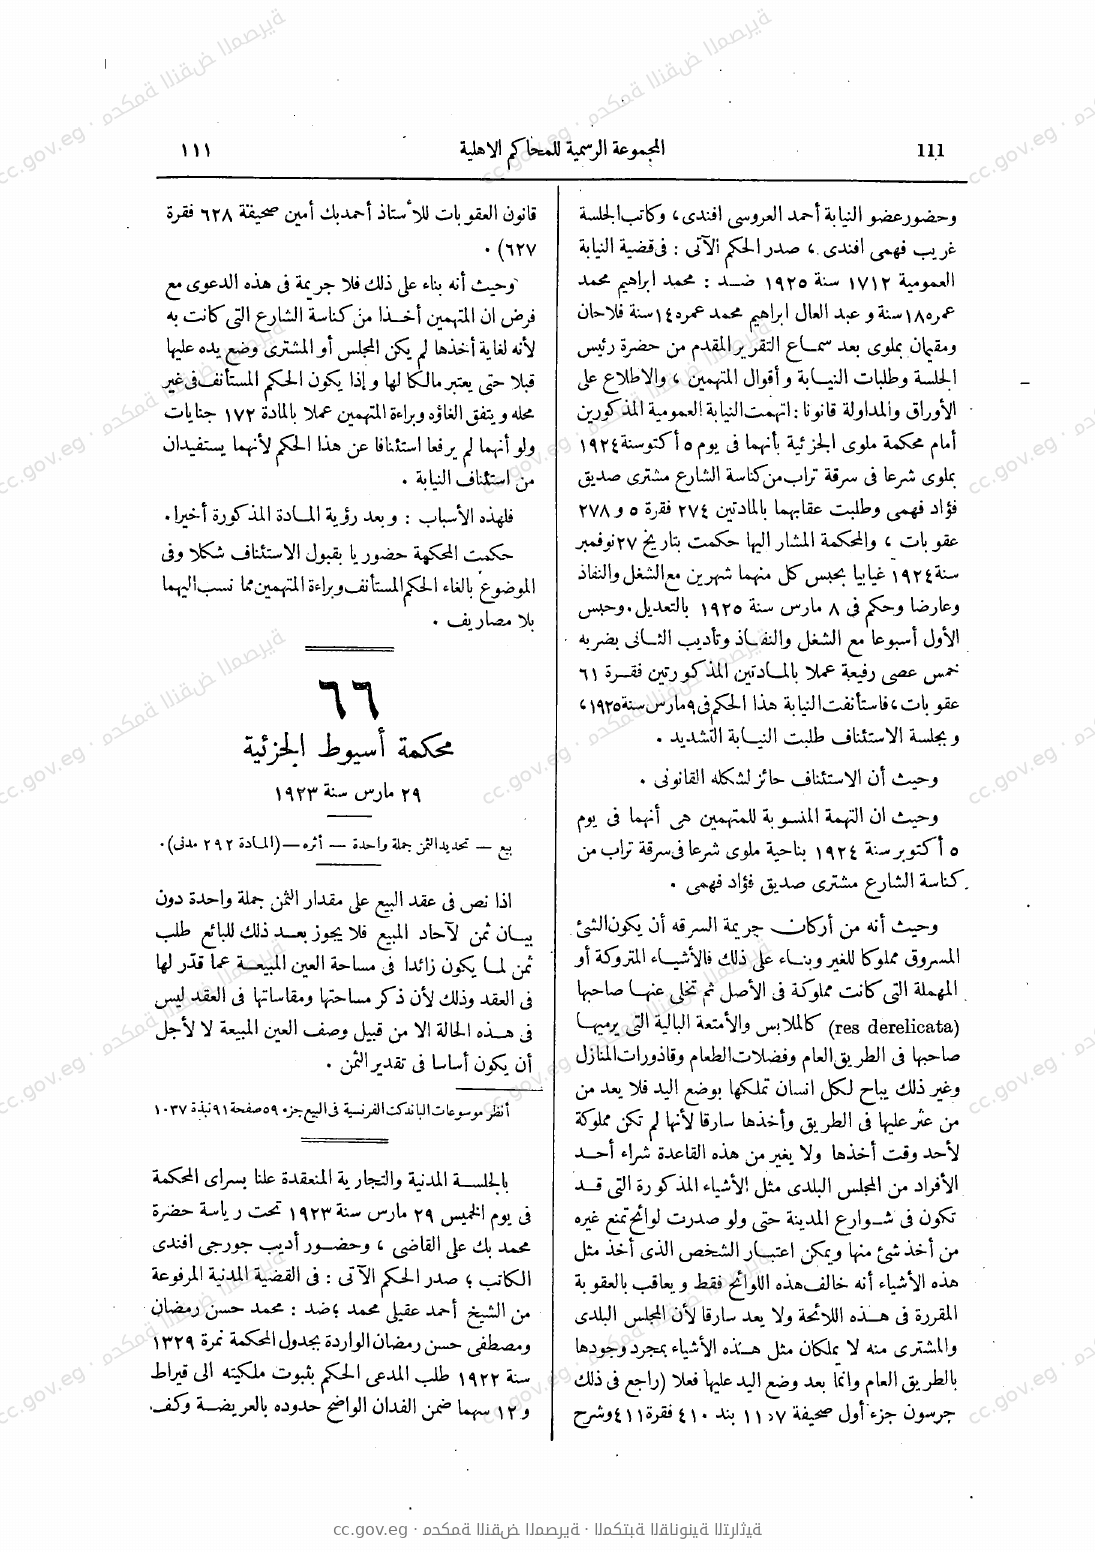 111
المجموعة الرسمية للمحاكم الاهلية
١١١
وحضور عضو النيابة أحمد العروسى افندى، وكاتب الجلسة
غريب فهمى افندى، صدر الحكم الآتى : فى قضية النيابة
العمومية ١٧١٢ سنة ١٩٢٥ ضد : محمد ابراهيم محمد
عمره ١٨ سنة و عبد العال ابراهيم محمد عمره ١٤ سنة فلاحان
ومقيمان بملوى بعد سماع التقرير المقدم من حضرة رئيس
الجلسة وطلبات النيابة وأقوال المتهمين ، والاطلاع على
الأوراق والمداولة قانونا : اتهمت النيابة العمومية المذكورين
أمام محكمة ملوى الجزئية بأنهما فى يوم ٥ أكتوسنة ١٩٢٤
بملوى شرعا فى سرقة تراب من كناسة الشارع مشترى صديق
فؤاد فهمى وطلبت عقابهما بالمادتين ٢٧٤ فقرة ٥ و ٢٧٨
عقوبات ، والمحكمة المشار اليها حكمت بتاريخ ٢٧ نوفمبر
سنة ١٩٢٤ غيابيا بحبس كل منهما شهرين مع الشغل والنفاذ
وعارضا وحكم فى ٨ مارس سنة ١٩٢٥ بالتعديل . وحبس
الأول أسبوعا مع الشغل والنفاذ وتأديب الثانى بضربه
خمس عصى رفيعة عملا بالمادتين المذكورتين فقرة ٦١
عقوبات، فاستأنفت النيابة هذا الحكم فى ٩ مارس سنة ١٩٢٥،
وبجلسة الاستئناف طلبت النيابة التشديد .
وحيث أن الاستئناف حائز لشكله القانونى .
وحيث ان التهمة المنسوبة للمتهمين هى أنهما فى يوم
٥ أكتوبر سنة ١٩٢٤ بناحية ملوى شرعا فى سرقة تراب من
كناسة الشارع مشترى صديق فؤاد فهمى .
وحيث أنه من أركان جريمة السرقه أن يكون الشئ
المسروق مملوكا للغير وبناء على ذلك فالأشياء المتروكة أو
المهملة التى كانت مملوكة فى الأصل ثم تخلى عنها صاحبها
(res derelicata) كالملابس والأمتعة البالية التى يرميها
صاحبها فى الطريق العام وفضلات الطعام وقاذورات المنازل
وغير ذلك يباح لكل انسان تملكها بوضع اليد فلا يعد من
من عثر عليها فى الطريق وأخذها سارقا لأنها لم تكن مملوكة
لأحد وقت أخذها ولا يغير من هذه القاعدة شراء أحد
الأفراد من المجلس البلدى مثل الأشياء المذكورة التى قد
تكون فى شوارع المدينة حتى ولو صدرت لوائح تمنع غيره
من أخذ شئ منها ويمكن اعتبار الشخص الذى أخذ مثل
هذه الأشياء أنه خالف هذه اللوائح فقط ويعاقب بالعقوبة
المقررة فى هذه اللائحة ولا يعد سارقا لأن المجلس البلدى
والمشترى منه لا يملكان مثل هذه الأشياء بمجرد وجودها
بالطريق العام وانما بعد وضع اليد عليها فعلا (راجع فى ذلك
جرسون جزء أول صحيفة بند ٤١٠ فقرة ٤١١ وشرح
قانون العقوبات للأستاذ أحمد بك أمين صحيفة ٦٢٨ فقرة
٦٢٧) .
وحيث أنه بناء على ذلك فلا جريمة فى هذه الدعوى مع
فرض ان المتهمين أخذا من كناسة الشارع التى كانت به
لأنه لغاية أخذها لم يكن المجلس أو المشترى وضع يده عليها
قبلا حتى يعتبر مالكا لها وإذا يكون الحكم المستأنف فى غير
محله ويتفق الغاؤه وبراءة المتهمين عملا بالمادة ١٧٢ جنايات
ولو أنهما لم يرفعا استئنافا عن هذا الحكم لأنهما يستفيدان
من استئناف النيابة .
فلهذه الأسباب : وبعد رؤية المادة المذكورة أخيرا.
حكمت المحكمة حضوريا بقبول الاستئناف شكلا وفى
الموضوع بالغاء الحكم المستأنف وبراءة المتهمين مما نسب اليهما
بلا مصاريف .
٦٦
محكمة أسيوط الجزئية
٢٩ مارس سنة ١٩٢٣
بيع — تحديد الثمن جملة واحدة — أثره — (المادة ٢٩٢ مدنى).
اذا نص فى عقد البيع على مقدار الثمن جملة واحدة دون
بيان ثمن لآحاد المبيع فلا يجوز بعد ذلك للبائع طلب
ثمن لما يكون زائدا فى مساحة العين المبيعة عما قدر لها
فى العقد وذلك لأن ذكر مساحتها ومقاساتها فى العقد ليس
فى هذه الحالة الا من قبيل وصف العين المبيعة لا لأجل
أن يكون أساسا فى تقدير الثمن .
أنظر موسوعات الباندكت الفرنسية فى البيع جزء ٥٩ صفحة ٩١ نبذة ١٠٣٧
بالجلسة المدنية والتجارية المنعقدة علنا بسراى المحكمة
فى يوم الخميس ٢٩ مارس سنة ١٩٢٣ تحت رياسة حضرة
محمد بك على القاضى ، وحضور أديب جورجى افندى
الكاتب ؛ صدر الحكم الآتى : فى القضية المدنية المرفوعة
من الشيخ أحمد عقيلى محمد ؛ ضد : محمد حسن رمضان
ومصطفى حسن رمضان الواردة بجدول المحكمة نمرة ١٣٢٩
سنة ١٩٢٢ طلب المدعى الحكم بثبوت ملكيته الى قيراط
و ١٢ سهما ضمن الفدان الواضح حدوده بالعريضة وكف
cc.gov.eg · محكمة النقض المصرية · المكتبة القانونية التراثية